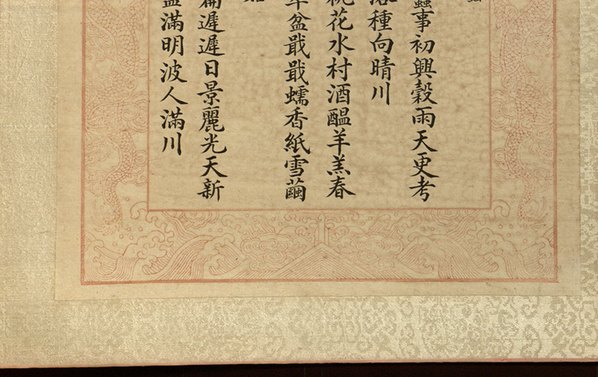 蠶事初興穀雨天更考
浴種向晴川
桃花水村酒醖羊羔春
盆戢戢蠕香紙雪繭
遲遲日景麗光天新
滿明波人滿川